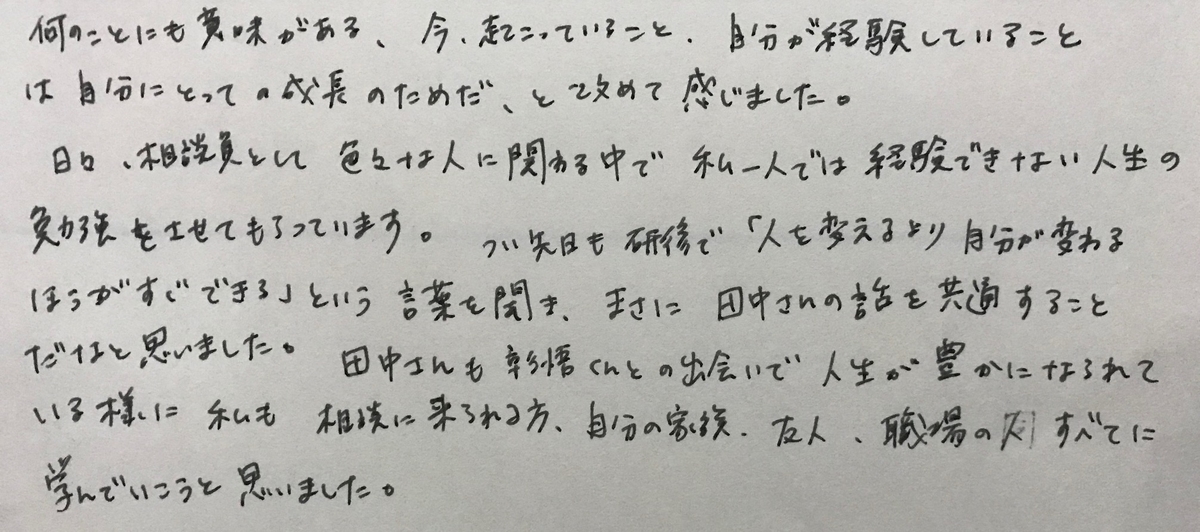 何のことにも意味がある、今、起こっていること、自分が経験していること
は自分にとっての成長のためだ、と改めて感じました。
日々、相談員として色々な人に関わる中で私一人では経験できない人生の
勉強をさせてもらっています。つい先日も研修で「人を変えるより自分が変わる
ほうがすぐできる」という言葉を聞き、まさに田中さんの話を共通すること
だなと思いました。田中さんも彰悟くんとの出会いで人生が豊かになられて
いる様に私も相談に来られる方、自分の家族、友人、職場の人すべてに
学んでいこうと思いました。